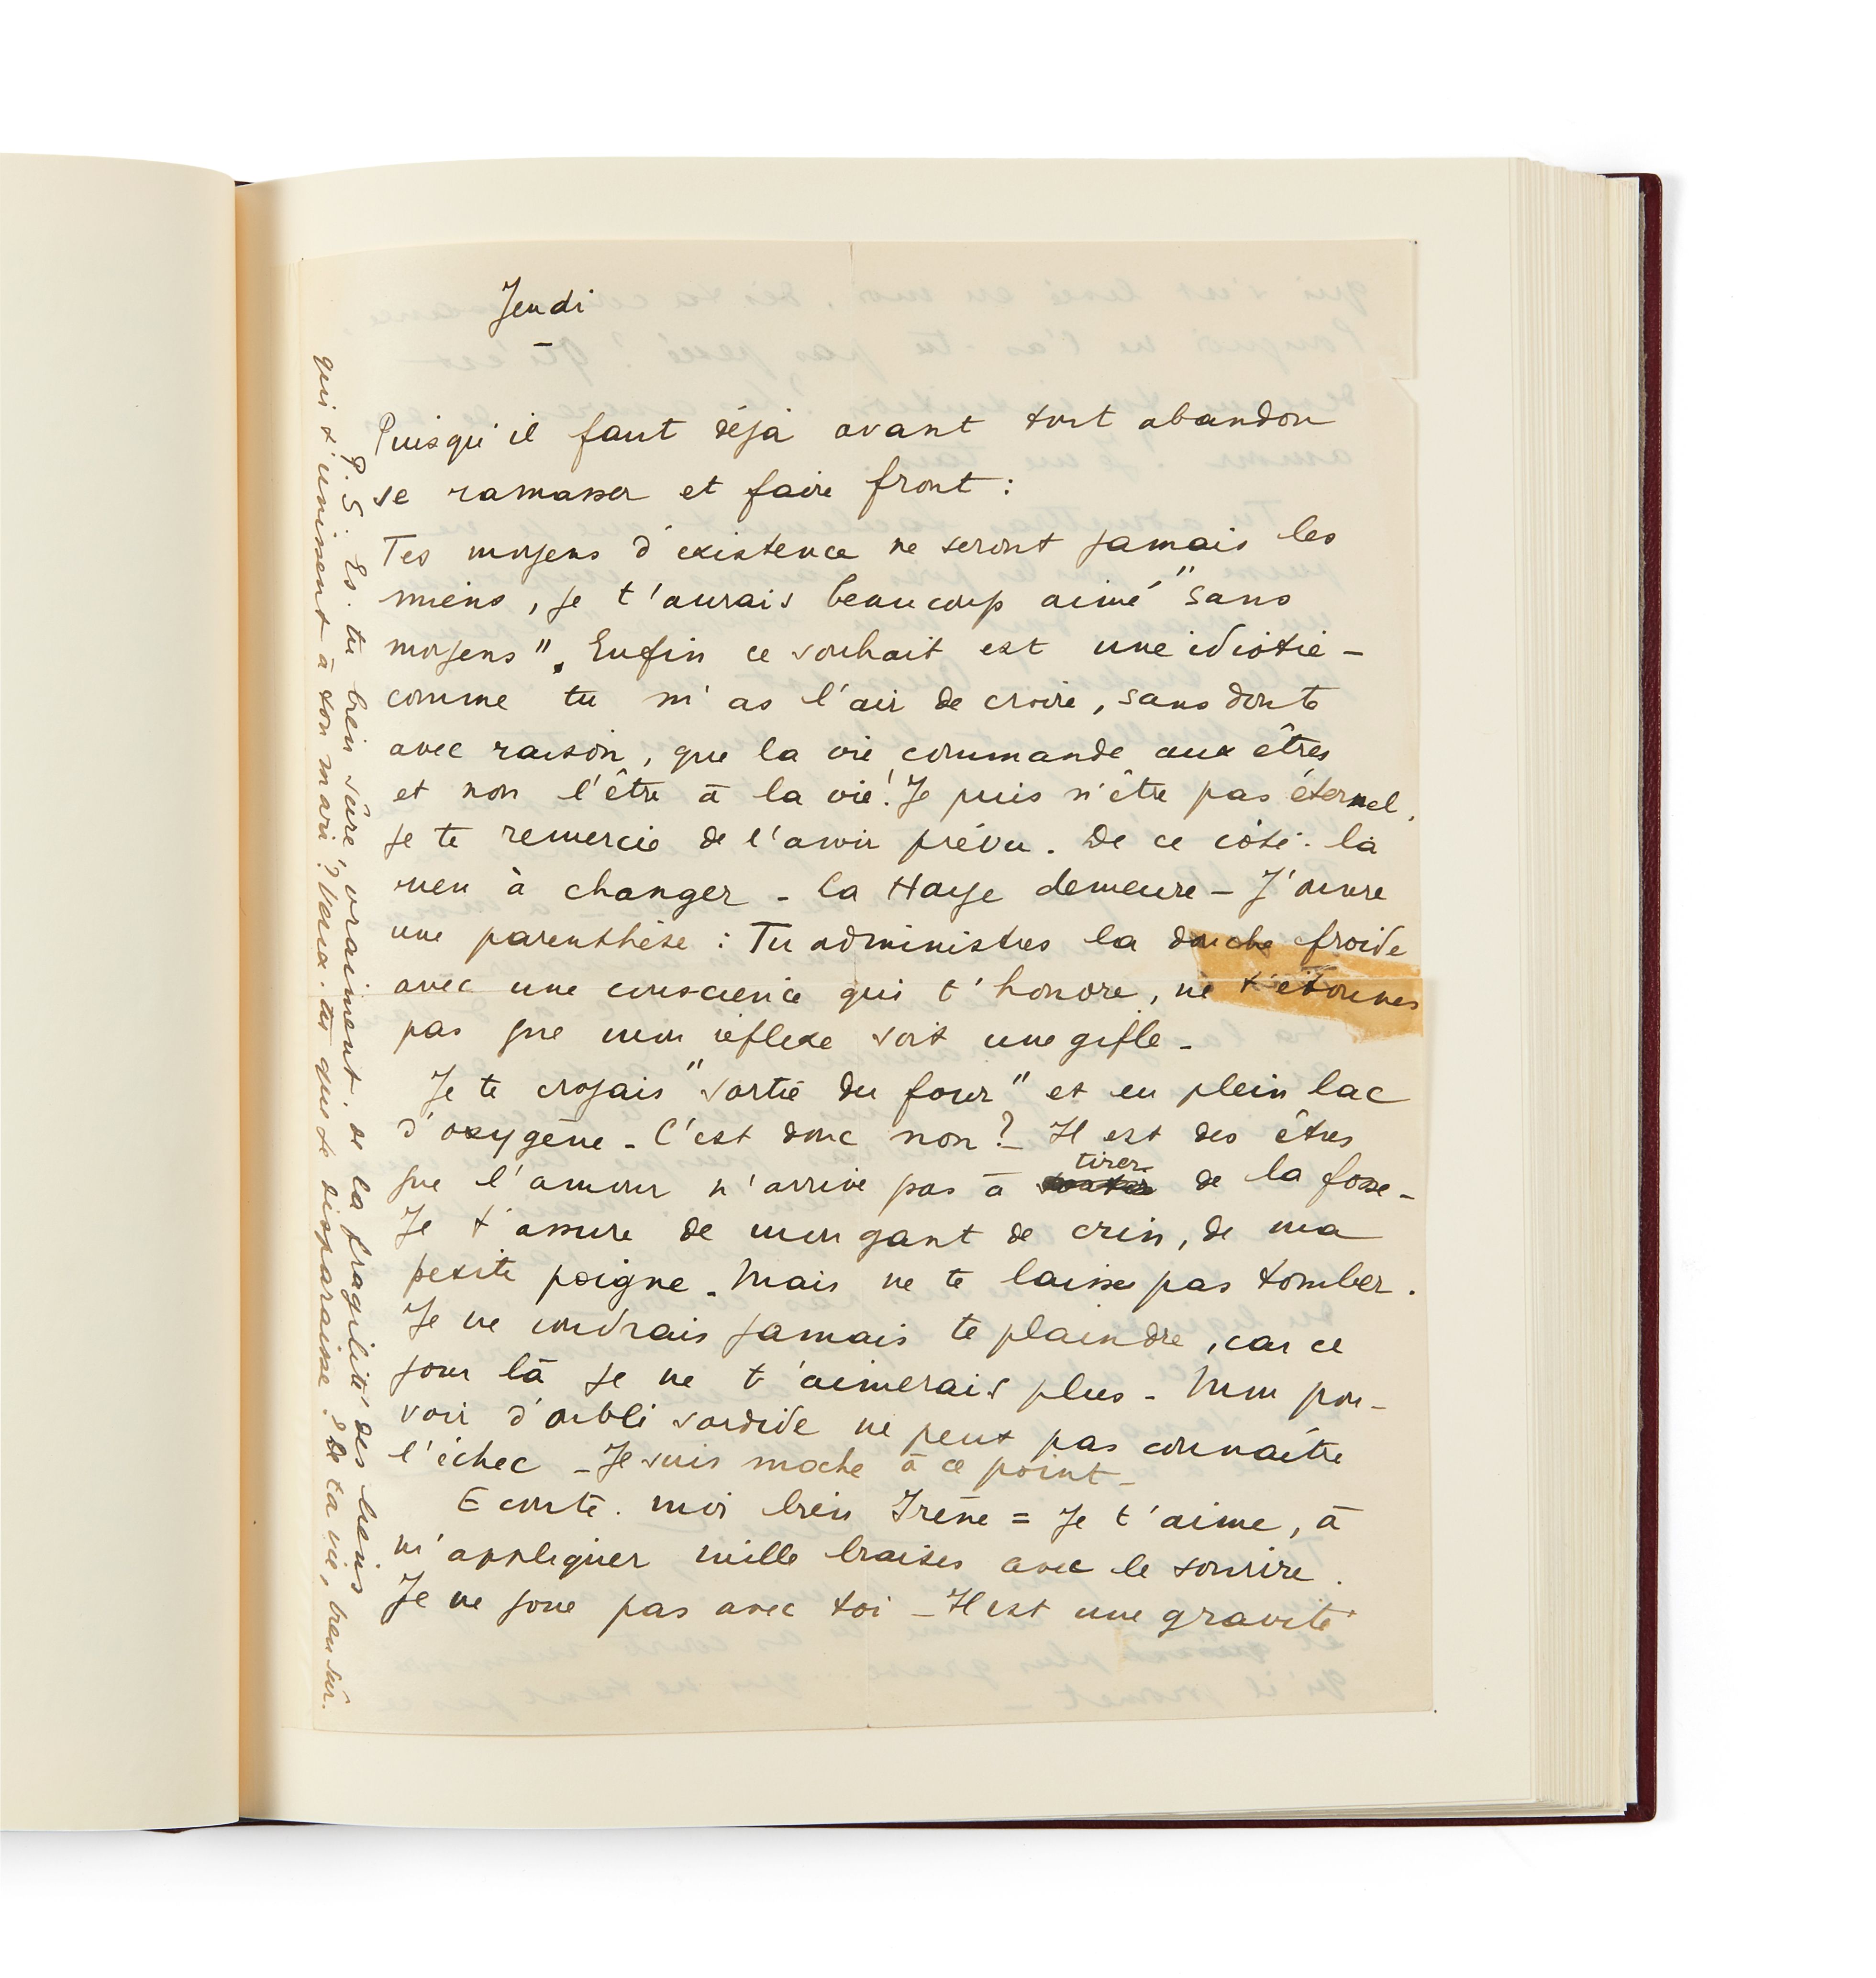 Jeudi
Puisqu'il faut déjà avant tout abandon
se ramasser et faire front :
Tes moyens d'existence ne seront jamais les
miens, je t'aurais beaucoup aimé "sans
moyens". Enfin ce souhait est une idiotie -
comme tu m'as l'air de croire, sans doute
avec raison, que la vie commande aux êtres
et non l'être à la vie! Je puis n'être pas éternel,
je te remercie de l'avoir prévu. De ce côté-là
rien à changer - la Haye demeure - J'ouvre
une parenthèse : Tu administres la douche froide
avec une conscience qui t'honore, ne t'étonnes
pas que mon réflexe soit une gifle -
Je te croyais "sortie du four" et en plein lac
d'oxygène - C'est donc non? - Il est des êtres
que l'amour n'arrive pas à tirer de la fosse -
Je t'assure de mon gant de crin, de ma
petite poigne - Mais ne te laisse pas tomber.
Je ne voudrais jamais te plaindre, car ce
jour là je ne t'aimerais plus - Mon pou-
voir d'oubli sordide ne peut pas connaître
l'échec - Je suis moche à ce point -
Ecoute-moi bien Irène = Je t'aime, à
m'appliquer mille braises avec le sourire.
Je ne joue pas avec toi - Il est une gravité
P.S. Es-tu bien sûre vraiment de la fragilité des liens
qui t'unissent à ton mari? Veux-tu qu'il disparaisse? De ta vie, bien sûr.